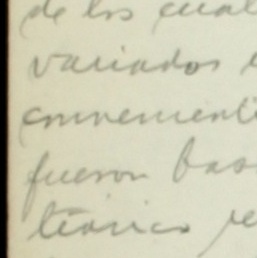 de los cual
variados
convenient
fueron bas
teórico re